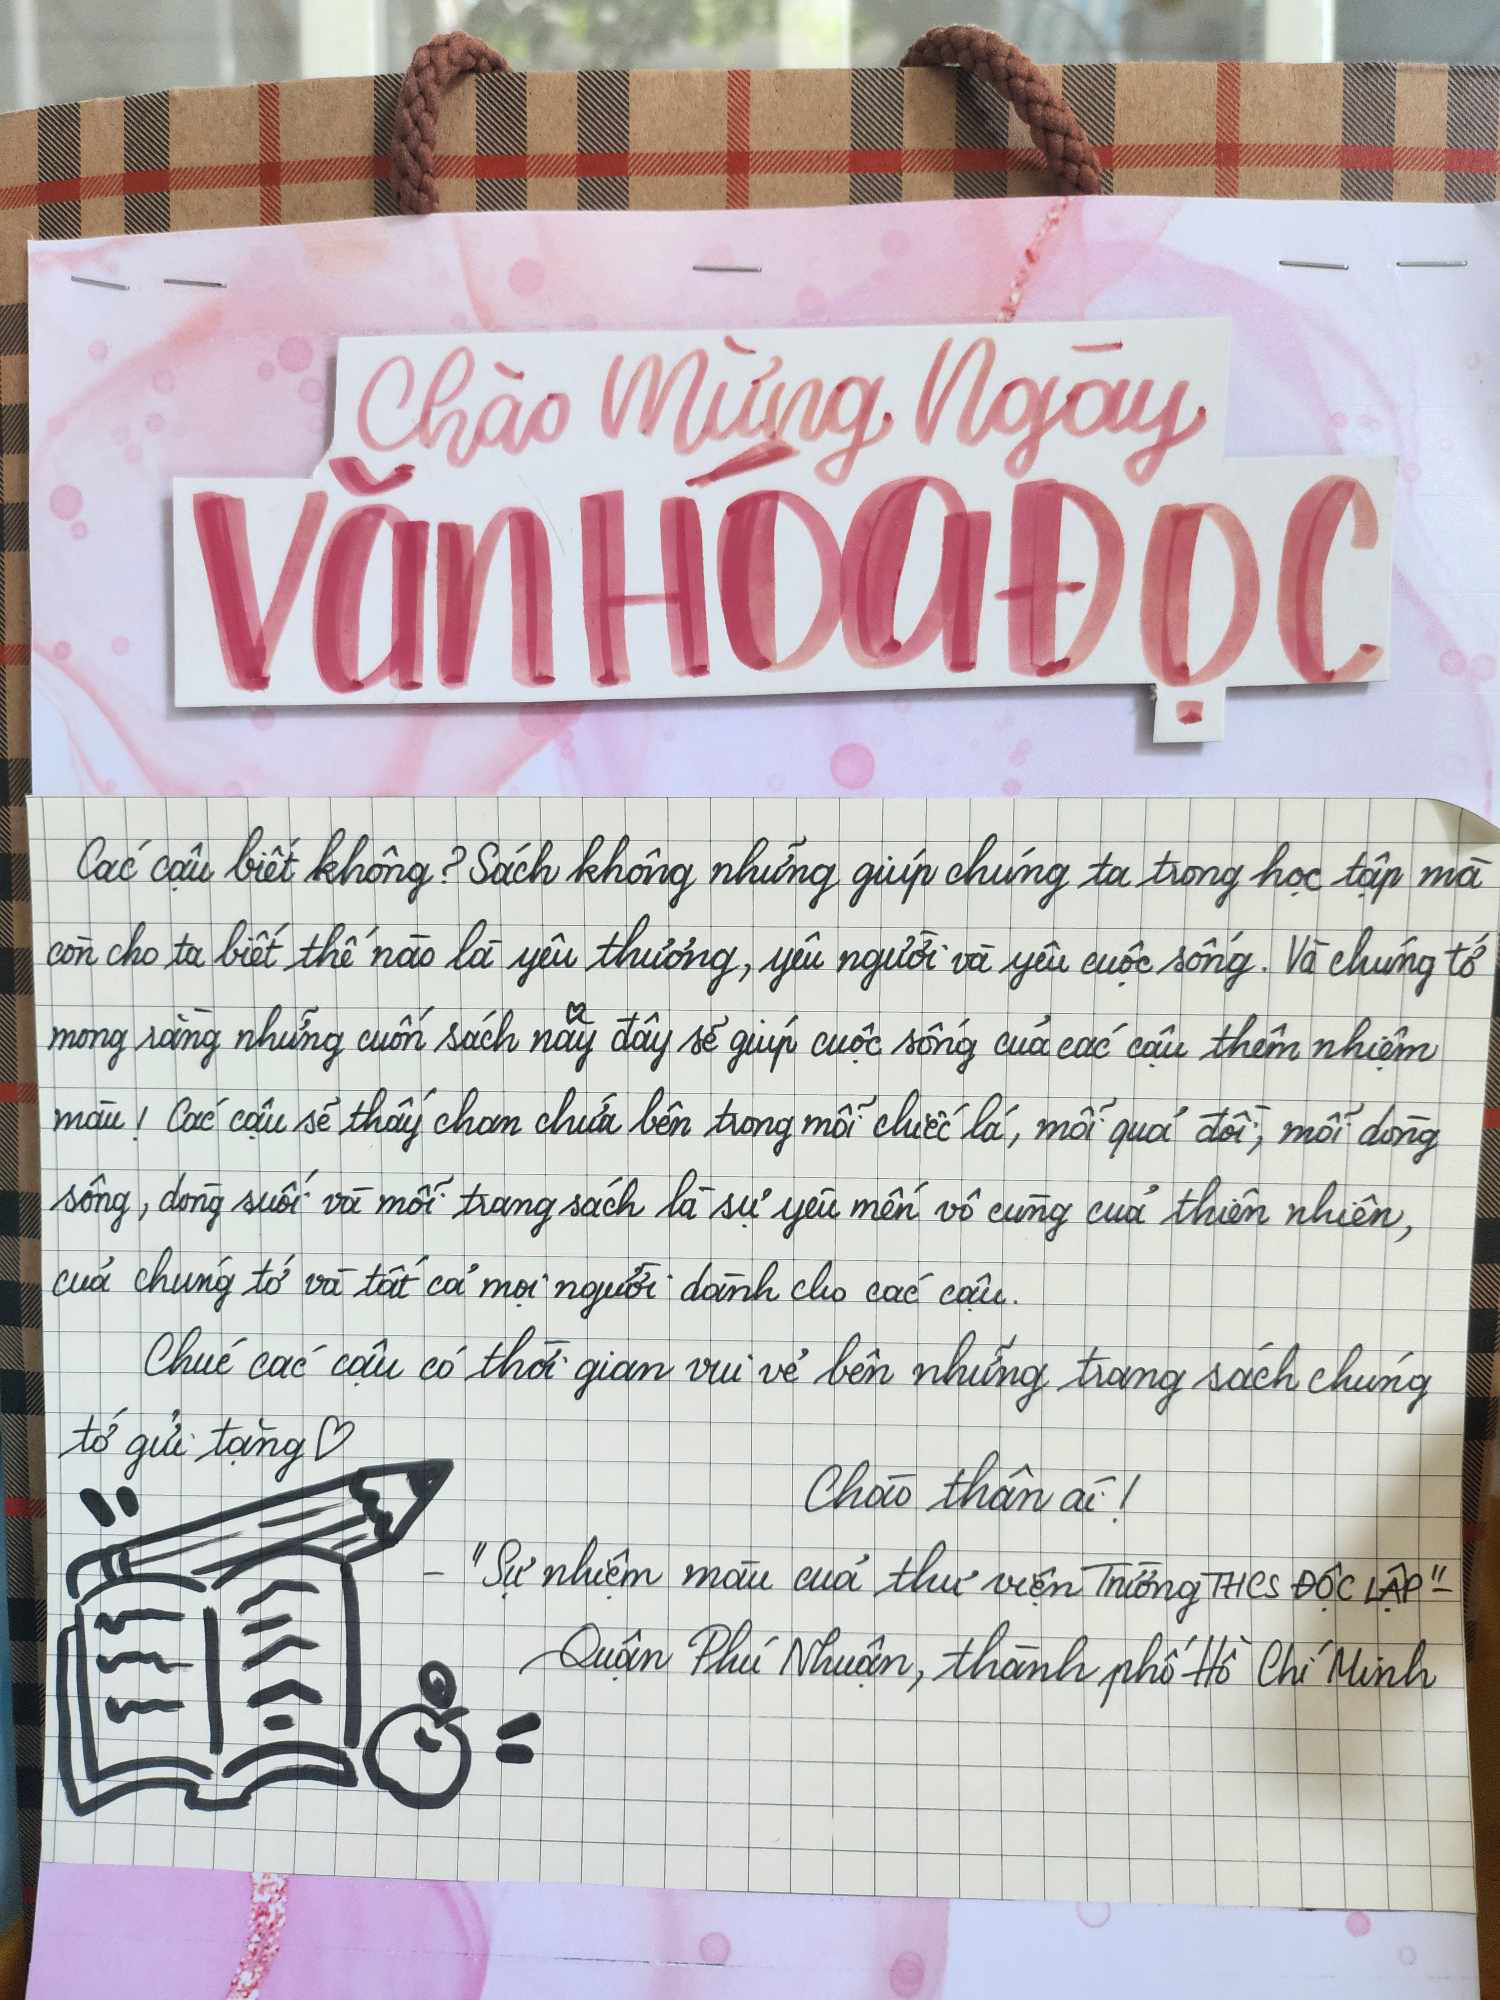 Chào Mừng Ngày
VĂN HÓA ĐỌC
Các cậu biết không? Sách không những giúp chúng ta trong học tập mà
còn cho ta biết thế nào là yêu thương, yêu người và yêu cuộc sống. Và chúng tớ
mong rằng những cuốn sách này đây sẽ giúp cuộc sống của các cậu thêm nhiệm
màu! Các cậu sẽ thấy chan chứa bên trong mỗi chiếc lá, mỗi quả đồi, mỗi dòng
sông, dòng suối và mỗi trang sách là sự yêu mến vô cùng của thiên nhiên,
của chúng tớ và tất cả mọi người dành cho các cậu.
Chúc các cậu có thời gian vui vẻ bên những trang sách chúng
tớ gửi tặng ♡
Chào thân ái!
- "Sự nhiệm màu của thư viện Trường THCS ĐỘC LẬP" -
Quận Phú Nhuận, thành phố Hồ Chí Minh